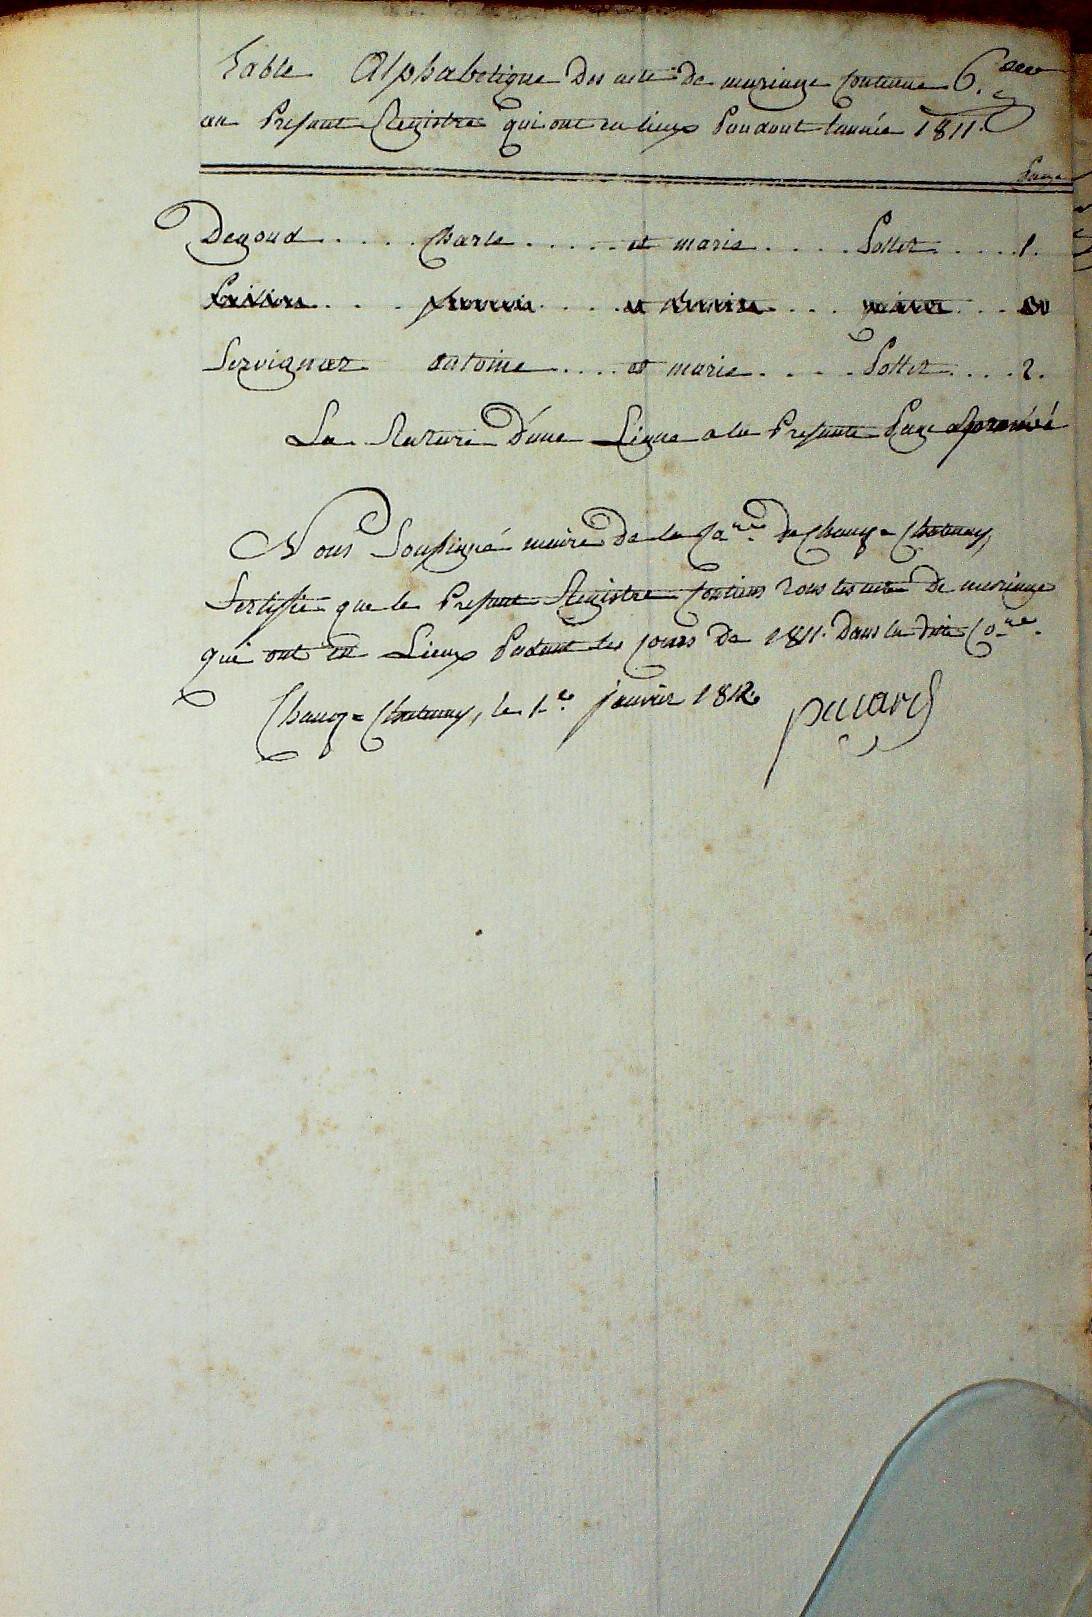 Table Alphabetique Des acte de mariage Contenue 6.
au Presant Registre qui ont eu lieux Pandant l'année 1811.
Page
Degoud .... Charle ..... et marie .... Pottet .... 1.
Servignat antoine .... et marie .... Pottet .... 2.
La Rature D'une Ligne a la Presante Page aprouvé
Nous Sousigné maire De la Co.ne De Changy = Chatenay,
Sertifie que le Presant Registre Contiens Tous les acte De mariage
qui ont eu Lieux Padant les jours De 1811. Dans la dite Co.ne.
Changy = Chatenay, le 1.e janvier 1812